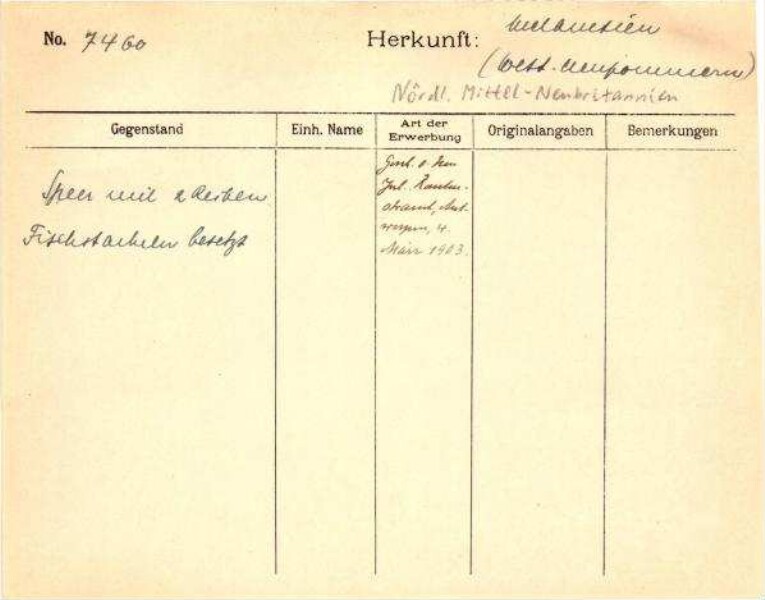 No. 7460
Herkunft: Melanesien
(West-Neupommern)
Nördl. Mittel-Neubritannien
Gegenstand
Einh. Name
Art der
Erwerbung
Originalangaben
Bemerkungen
Speer mit 2 Reihen
Fischstacheln besetzt
Gesch. v. Herrn
Jul.
Ant-
werpen, 4.
März 1903.